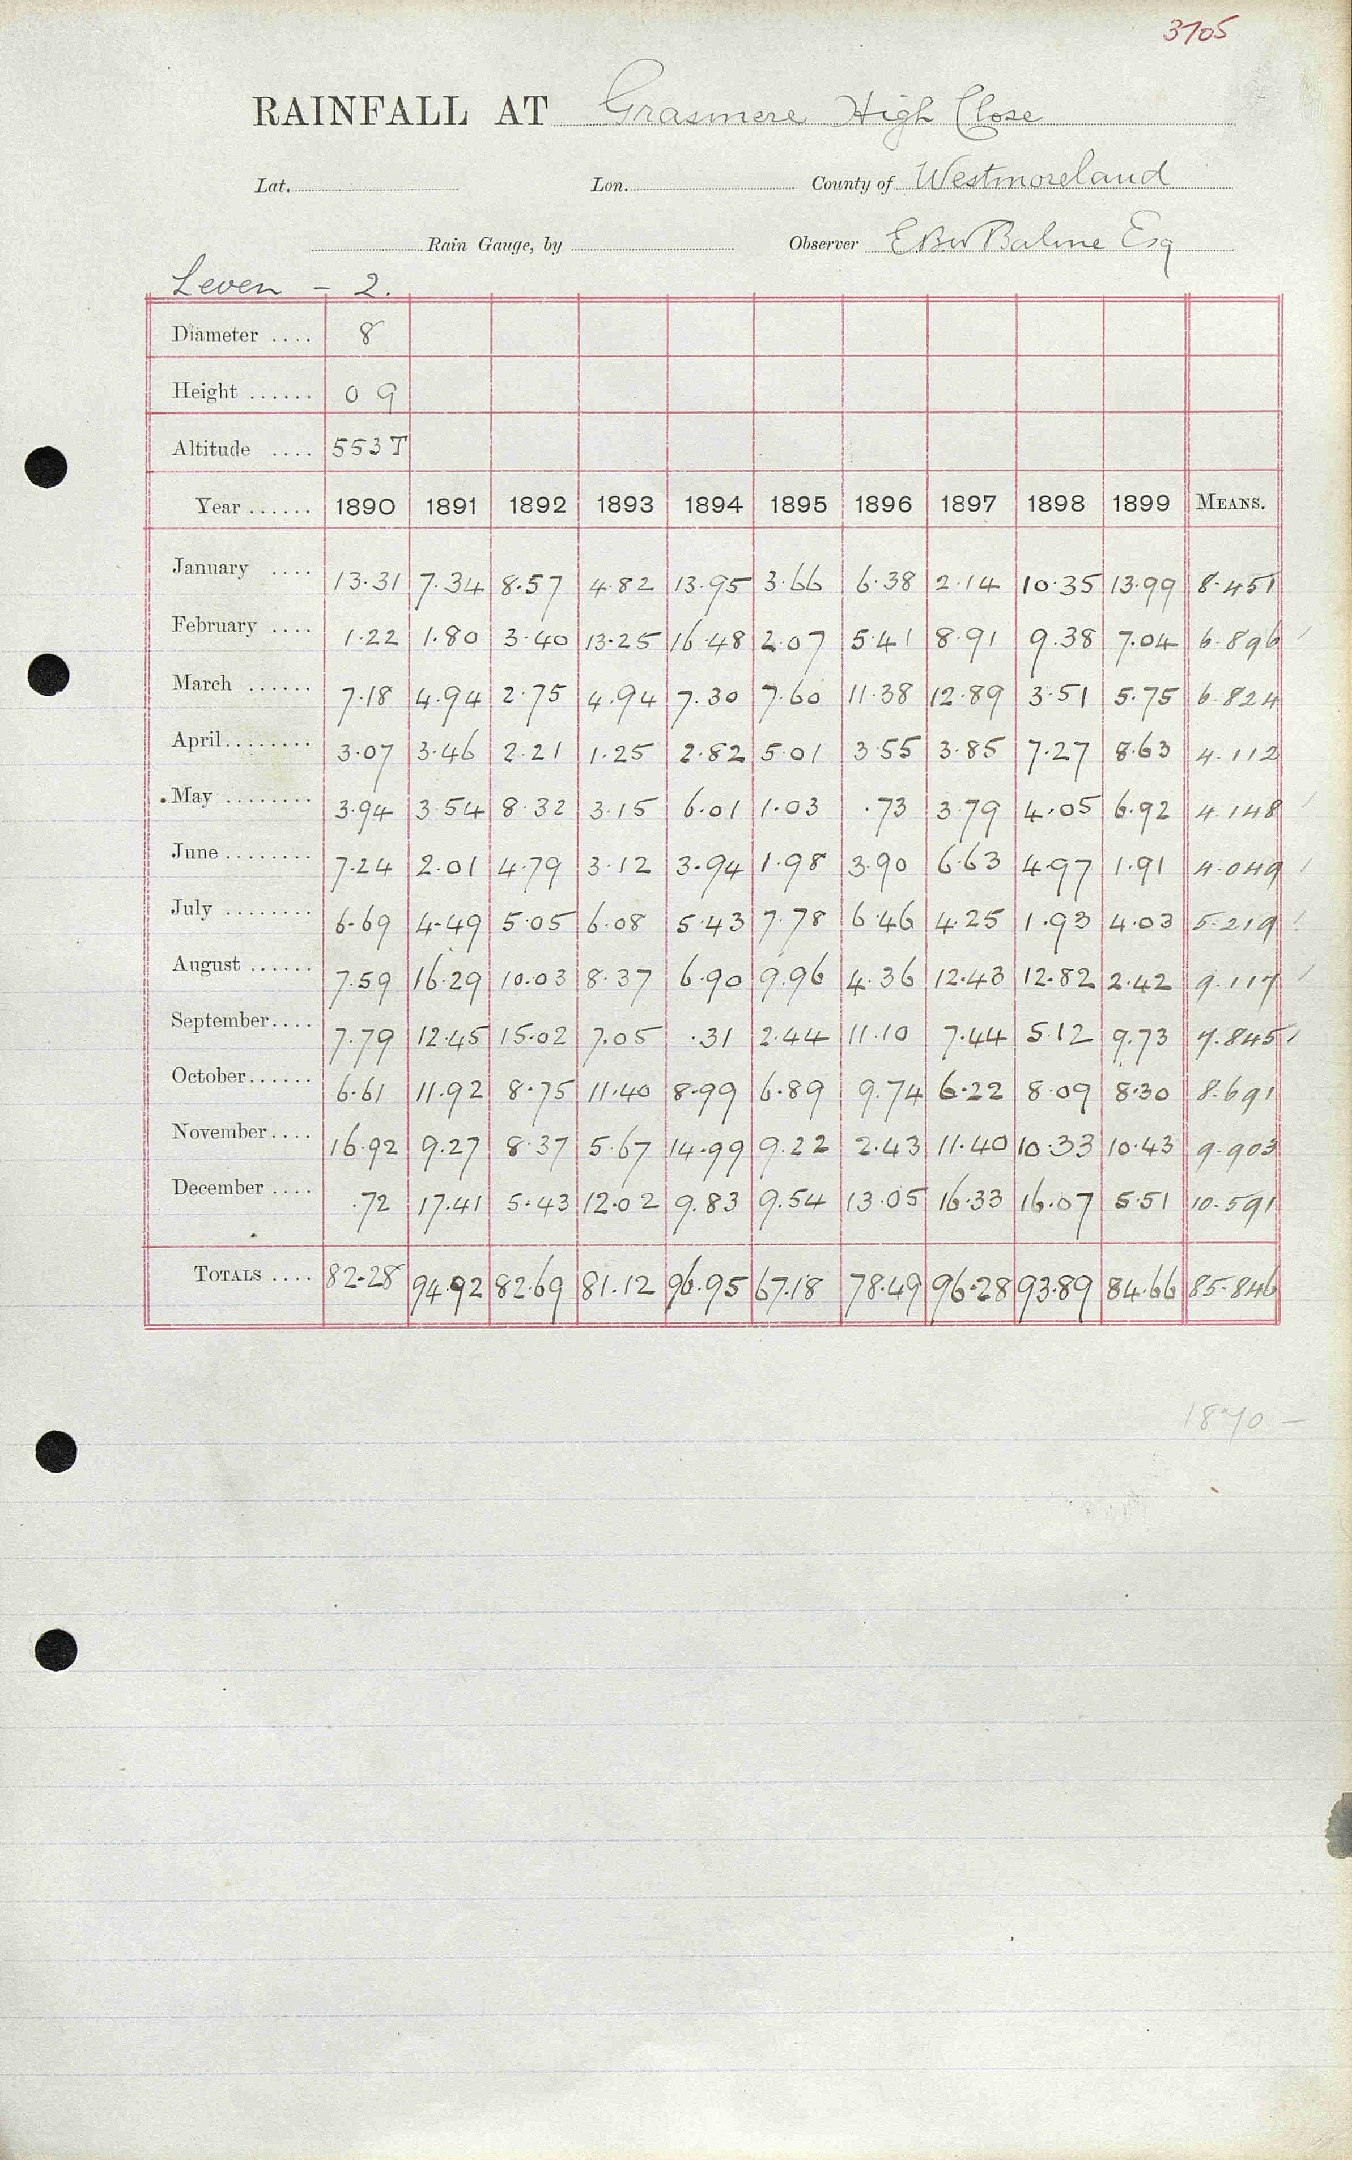 3705
RAINFALL AT Grasmere High Close
Lat. Lon. County of Westmoreland
Rain Gauge, by Observer EBW Balme Esq
Leven - 2.
Diameter .... 8
Height ...... 0 9
Altitude .... 553 T
Year ...... 1890 1891 1892 1893 1894 1895 1896 1897 1898 1899 MEANS.
January .... 13.31 7.34 8.57 4.82 13.95 3.66 6.38 2.14 10.35 13.99 8.451
February .... 1.22 1.80 3.40 13.25 16.48 2.07 5.41 8.91 9.38 7.04 6.896
March ...... 7.18 4.94 2.75 4.94 7.30 7.60 11.38 12.89 3.51 5.75 6.824
April........ 3.07 3.46 2.21 1.25 2.82 5.01 3.55 3.85 7.27 8.63 4.112
May ........ 3.94 3.54 8.32 3.15 6.01 1.03 .73 3.79 4.05 6.92 4.148
June ........ 7.24 2.01 4.79 3.12 3.94 1.98 3.90 6.63 4.97 1.91 4.049
July ........ 6.69 4.49 5.05 6.08 5.43 7.78 6.46 4.25 1.93 4.03 5.219
August ...... 7.59 16.29 10.03 8.37 6.90 9.96 4.36 12.43 12.82 2.42 9.117
September.... 7.79 12.45 15.02 7.05 .31 2.44 11.10 7.44 5.12 9.73 7.845
October...... 6.61 11.92 8.75 11.40 8.99 6.89 9.74 6.22 8.09 8.30 8.691
November.... 16.92 9.27 8.37 5.67 14.99 9.22 2.43 11.40 10.33 10.43 9.903
December .... .72 17.41 5.43 12.02 9.83 9.54 13.05 16.33 16.07 5.51 10.591
TOTALS .... 82.28 94.92 82.69 81.12 96.95 67.18 78.49 96.28 93.89 84.66 85.846
1870 -